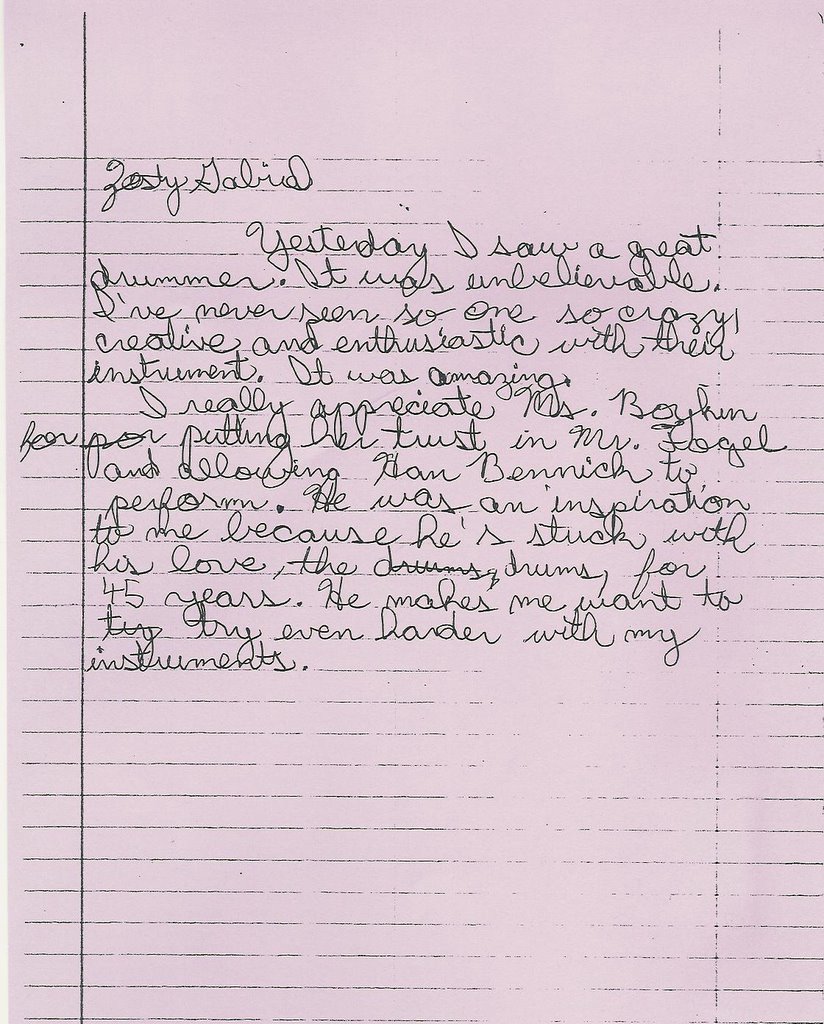 Zosty Gabriel
Yesterday I saw a great
drummer. It was unbelievable.
I've never seen so one so crazy,
creative and enthusiastic with their
instrument. It was amazing.
I really appreciate Ms. Boykin
for por putting her trust in Mr. Fogel
and allowing Han Bennick to
perform. He was an inspiration
to me because he's stuck with
his love, the drums, drums, for
45 years. He makes me want to
try try even harder with my
instruments.